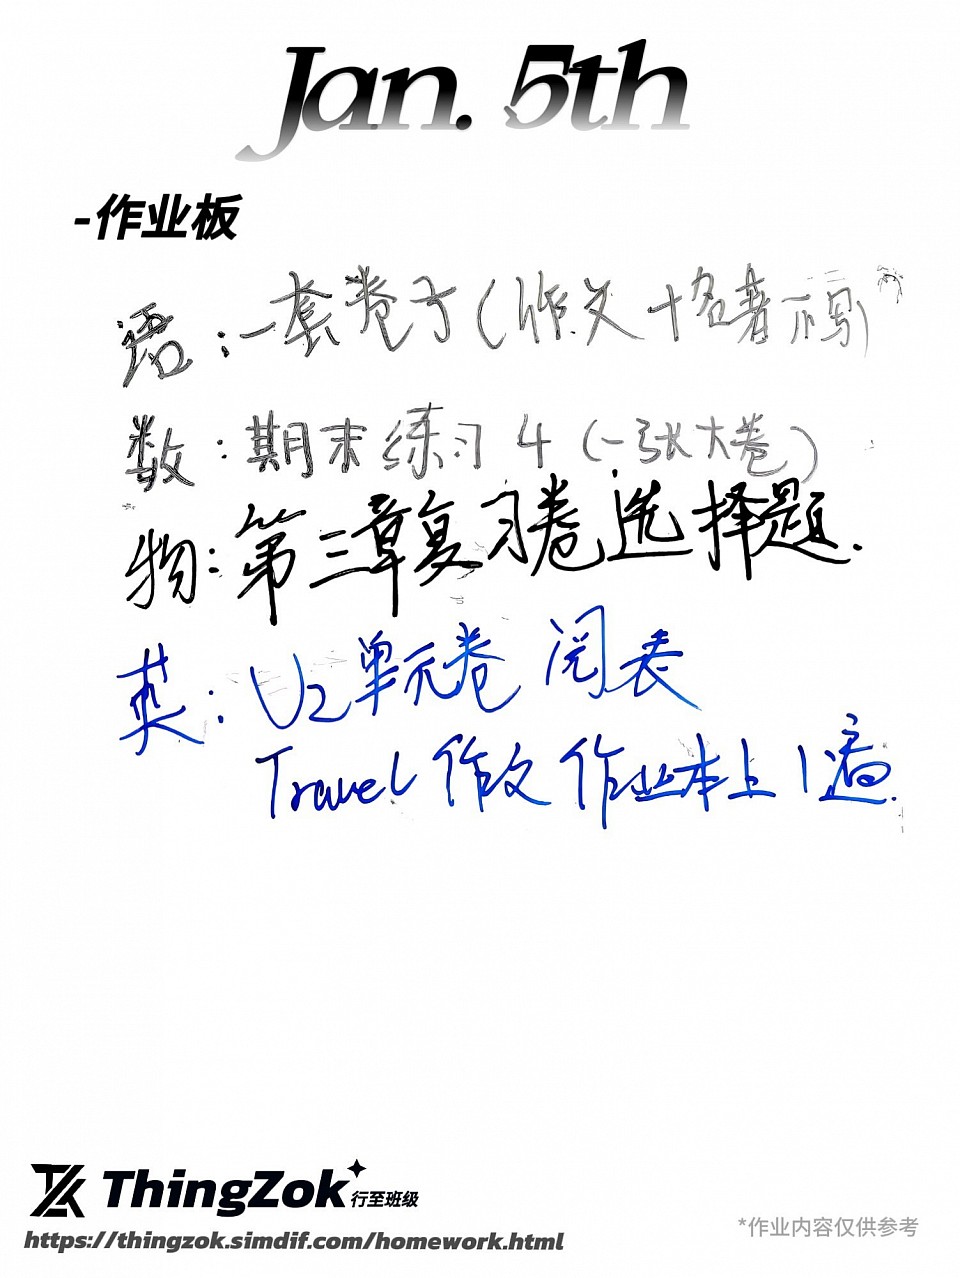 Jan. 5th
-作业板
语：一套卷子（作文+名著不写）
数：期末练习4（一张大卷）
物：第三章复习卷选择题.
英：U2单元卷 阅表
Travel 作文 作业本上1遍.
ThingZok 行至班级
https://thingzok.simdif.com/homework.html
*作业内容仅供参考